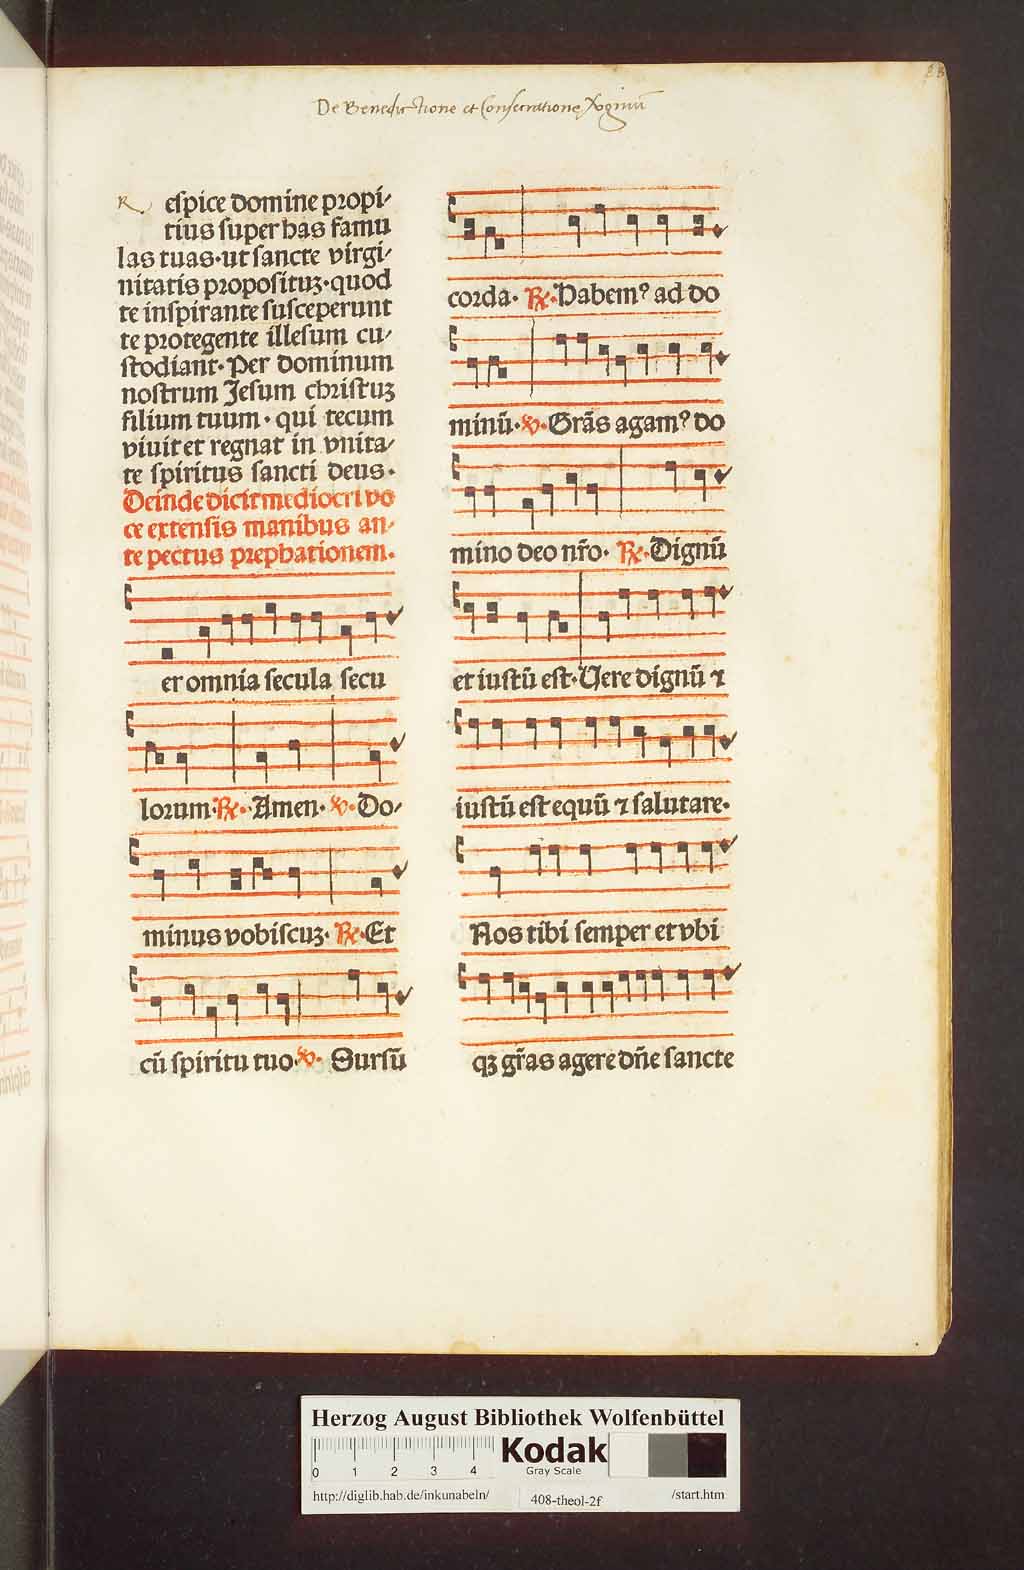 De Benedictione et Consecratione Virginum
R espice domine propi-
tius super has famu
las tuas·ut sancte virgi-
nitatis proposituꝫ·quod
te inspirante susceperunt
te protegente illesum cu-
stodiant·Per dominum
nostrum Jesum christuꝫ
filium tuum·qui tecum
viuit et regnat in vnita-
te spiritus sancti deus.
Deinde dicit mediocri vo
ce extensis manibus an-
te pectus prephationem.
er omnia secula secu
lorum·℟·Amen·℣·Do-
minus vobiscuꝫ·℟·Et
cū spiritu tuo·℣·Sursū
corda·℟·Habemꝰ ad do
minū·℣·Grās agamꝰ do
mino deo nr̄o·℟·Dignū
et iustū est·Uere dignū ⁊
iustū est equū ⁊ salutare.
Nos tibi semper et vbi
qꝫ gr̄as agere dn̄e sancte
Herzog August Bibliothek Wolfenbüttel
0 1 2 3 4
Kodak
Gray Scale
http://diglib.hab.de/inkunabeln/ 408-theol-2f /start.htm